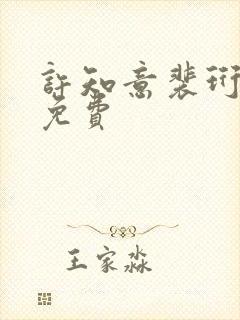 許知意裴珩
免費
王家淼